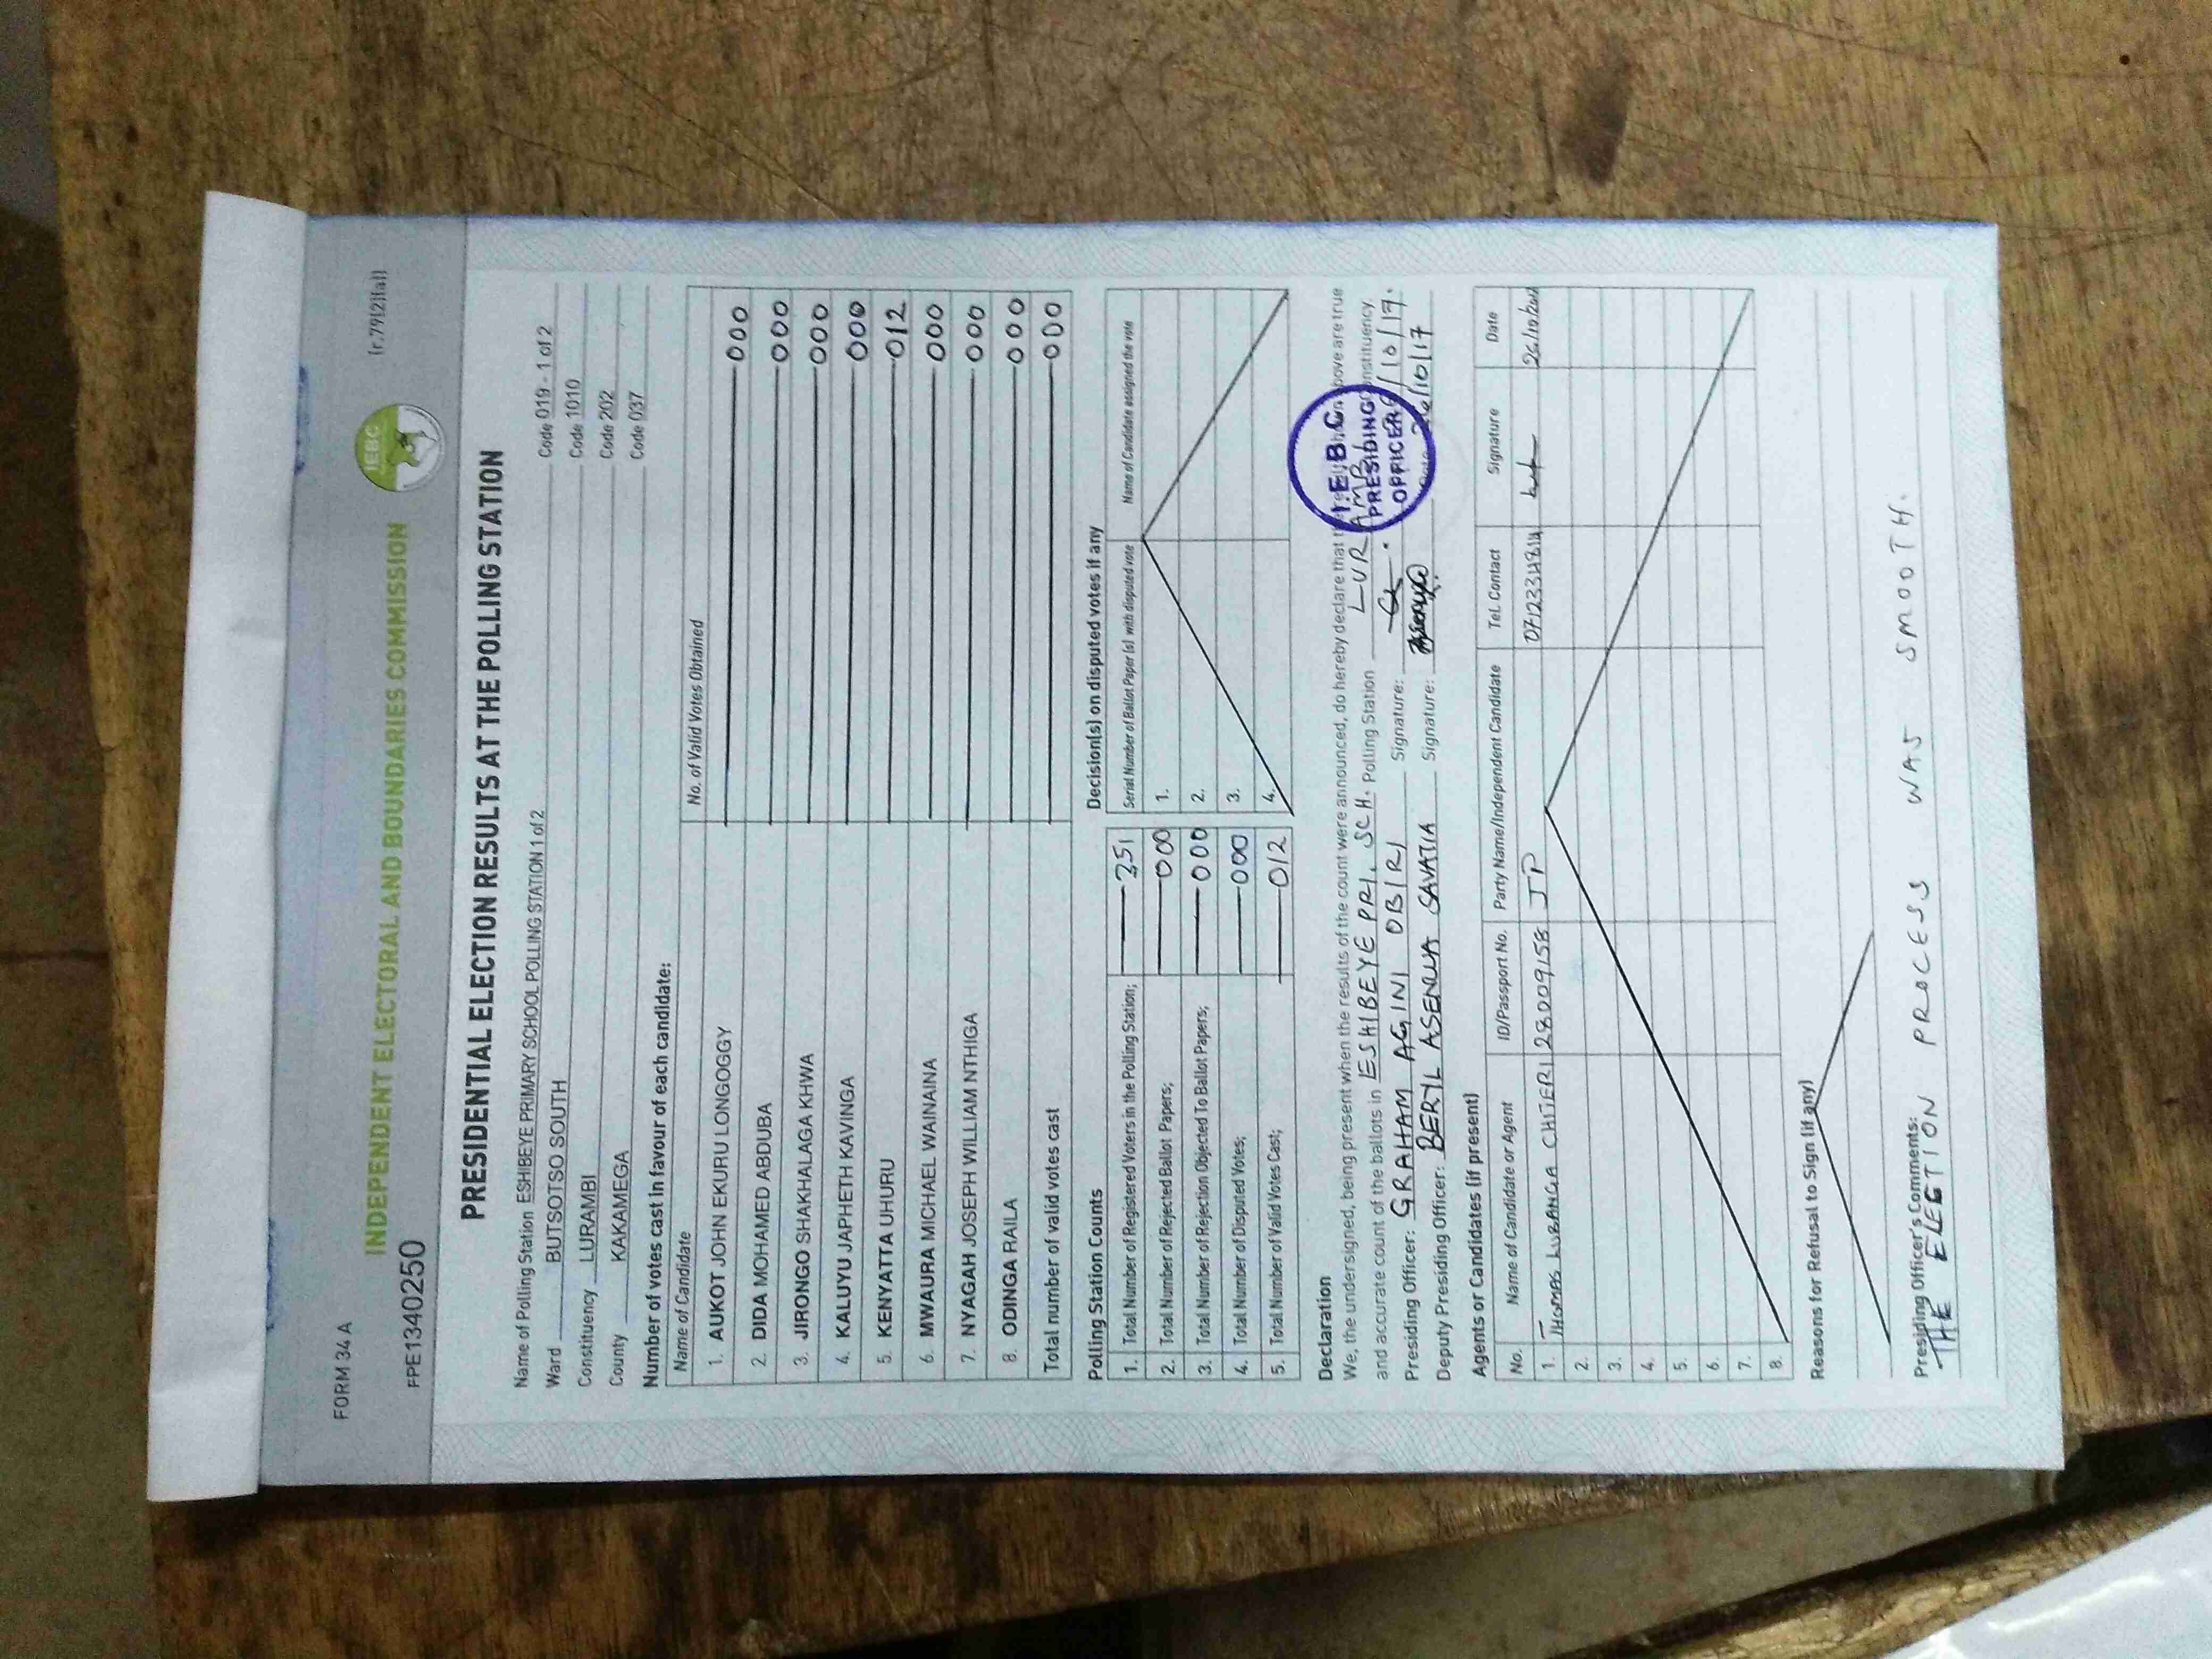 FORM 34 A
(r.79(2)(a))
INDEPENDENT ELECTORAL AND BOUNDARIES COMMISSION
IEBC
FPE1340250
PRESIDENTIAL ELECTION RESULTS AT THE POLLING STATION
Name of Polling Station ESHIBEYE PRIMARY SCHOOL POLLING STATION 1 of 2 Code 019 - 1 of 2
Ward BUTSOTSO SOUTH Code 1010
Constituency LURAMBI Code 202
County KAKAMEGA Code 037
Number of votes cast in favour of each candidate:
Name of Candidate No. of Valid Votes Obtained
1. AUKOT JOHN EKURU LONGOGGY 000
2. DIDA MOHAMED ABDUBA 000
3. JIRONGO SHAKHALAGA KHWA 000
4. KALUYU JAPHETH KAVINGA 000
5. KENYATTA UHURU 012
6. MWAURA MICHAEL WAINAINA 000
7. NYAGAH JOSEPH WILLIAM NTHIGA 000
8. ODINGA RAILA 000
Total number of valid votes cast 000
Polling Station Counts
1. Total Number of Registered Voters in the Polling Station; 351
2. Total Number of Rejected Ballot Papers; 000
3. Total Number of Rejection Objected To Ballot Papers; 000
4. Total Number of Disputed Votes; 000
5. Total Number of Valid Votes Cast; 012
Decision(s) on disputed votes if any
Serial Number of Ballot Paper (s) with disputed vote Name of Candidate assigned the vote
1.
2.
3.
4.
Declaration
We, the undersigned, being present when the results of the count were announced, do hereby declare that the above are true
and accurate count of the ballots in ESHIBEYE PRI. SCH. Polling Station LURAMBI Constituency.
Presiding Officer: GRAHAM AGINI OBIRI Signature: /10/17.
Deputy Presiding Officer: BERYL ASENWA SAVATIA Signature: 26/10/17
I.E.B.C
PRESIDING
OFFICER
Agents or Candidates (if present)
No. Name of Candidate or Agent ID/Passport No. Party Name/Independent Candidate Tel. Contact Signature Date
1. THOMAS LUBANGA CHITERI 28009158 JP 0712334814 26/10/2017
2.
3.
4.
5.
6.
7.
8.
Reasons for Refusal to Sign (if any)
Presiding Officer's Comments:
THE ELECTION PROCESS WAS SMOOTH.